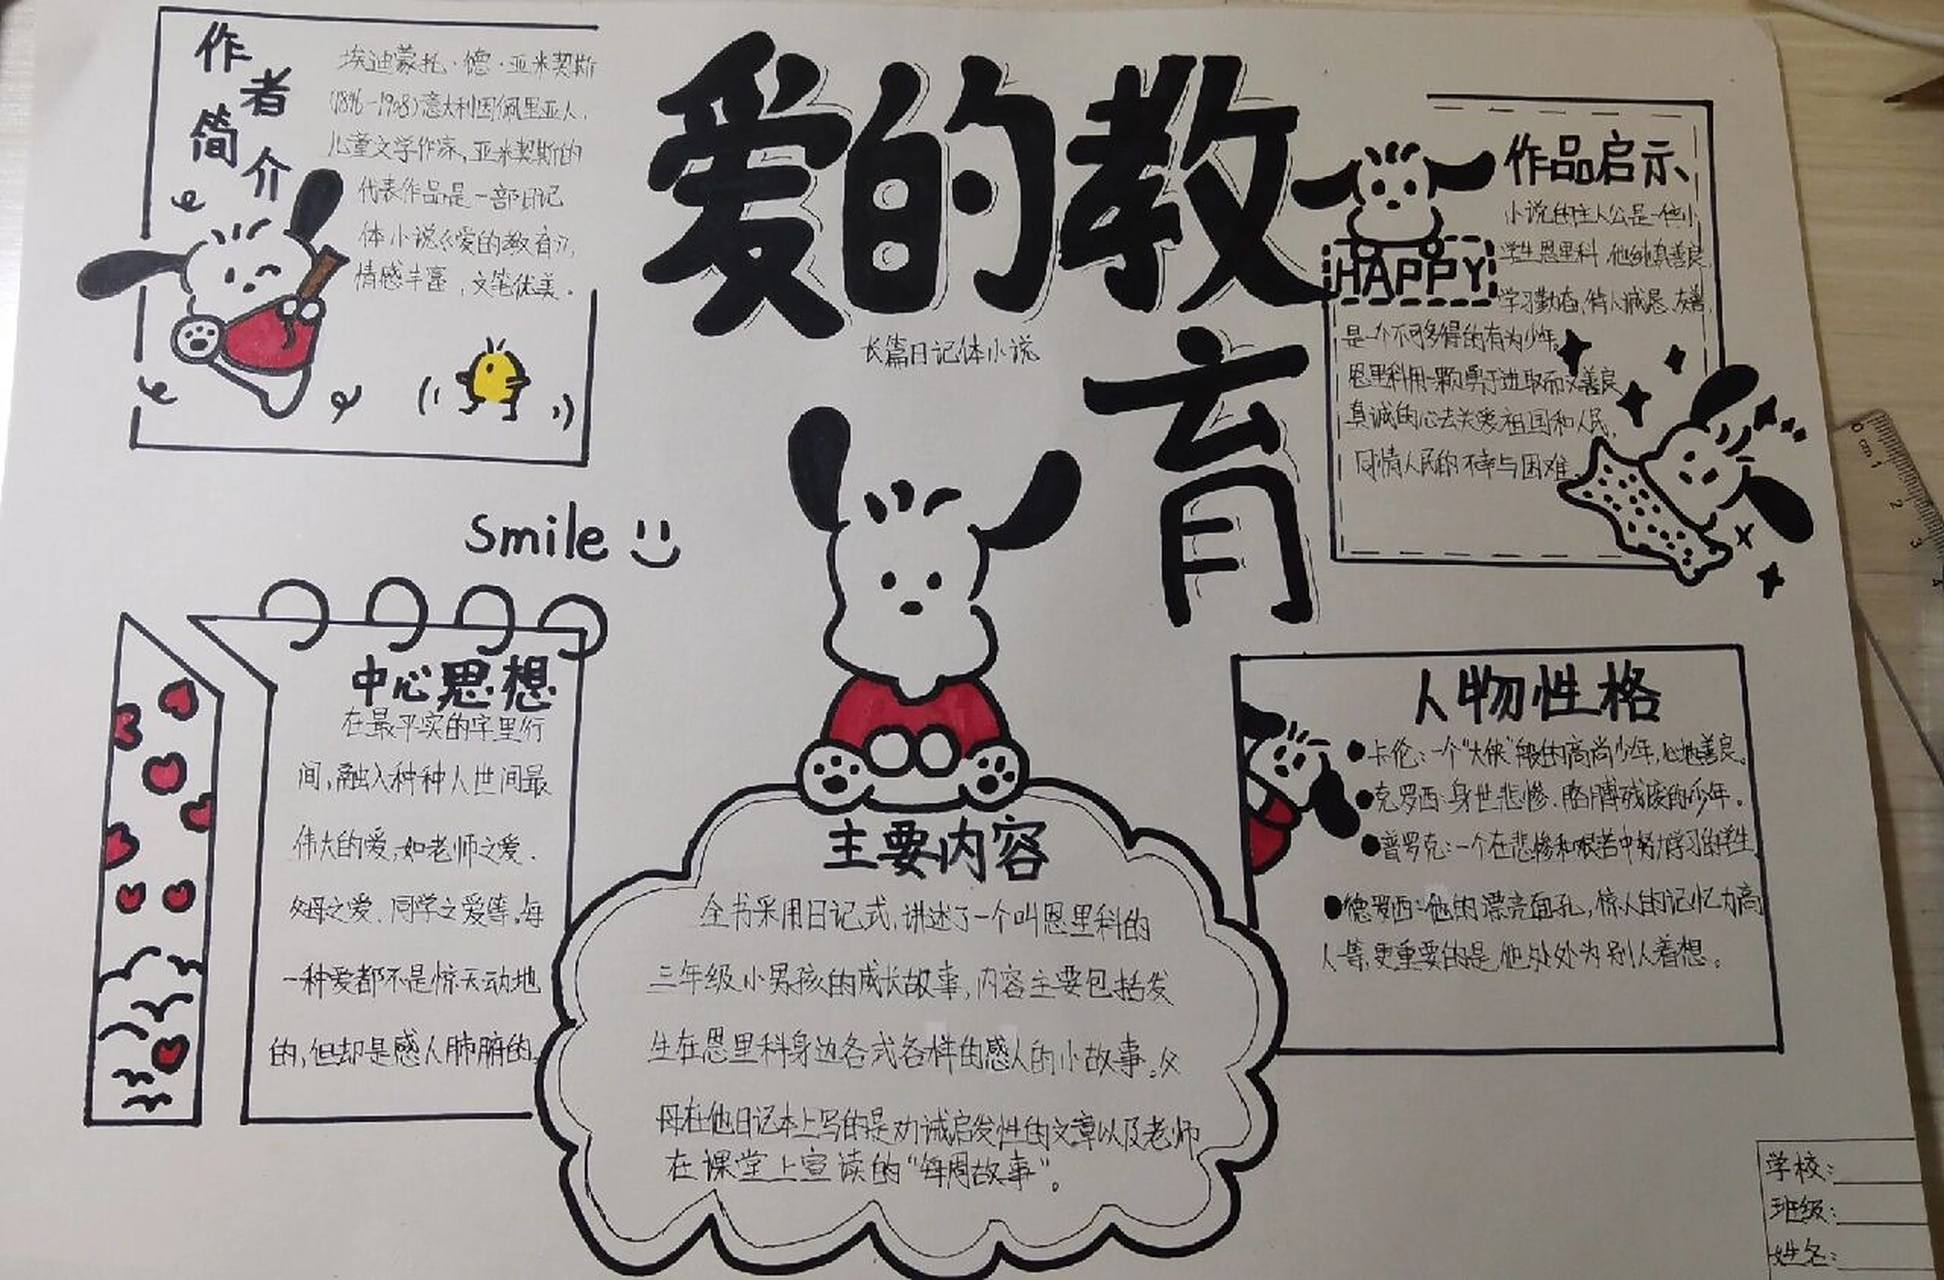 爱的教育
长篇日记体小说
作者简介
埃迪蒙托·德·亚米契斯
(1846-1908)意大利因佩里亚人,
儿童文学作家,亚米契斯的
代表作品是一部日记
体小说《爱的教育》,
情感丰富,文笔优美.
作品启示
小说的主人公是一位小
学生恩里科,他纯真善良
学习勤奋,待人诚恳、友善,
是一个不可多得的有为少年。
恩里科用一颗勇于进取而又善良
真诚的心去关爱祖国和人民,
同情人民的不幸与困难.
HAPPY
smile
中心思想
在最平实的字里行
间,融入种种人世间最
伟大的爱,如老师之爱.
父母之爱、同学之爱等。每
一种爱都不是惊天动地
的,但却是感人肺腑的。
主要内容
全书采用日记式,讲述了一个叫恩里科的
三年级小男孩的成长故事,内容主要包括发
生在恩里科身边各式各样的感人的小故事。父
母在他日记本上写的是劝诫启发性的文章以及老师
在课堂上宣读的“每周故事”。
人物性格
●卡伦:一个“大侠”般的高尚少年,心地善良。
●克罗西:身世悲惨、胳膊残废的少年。
●普罗克:一个在悲惨和艰苦中努力学习的学生
●德罗西:他的漂亮面孔,惊人的记忆力高
人一等,更重要的是,他处处为别人着想。
学校:
班级:
姓名: